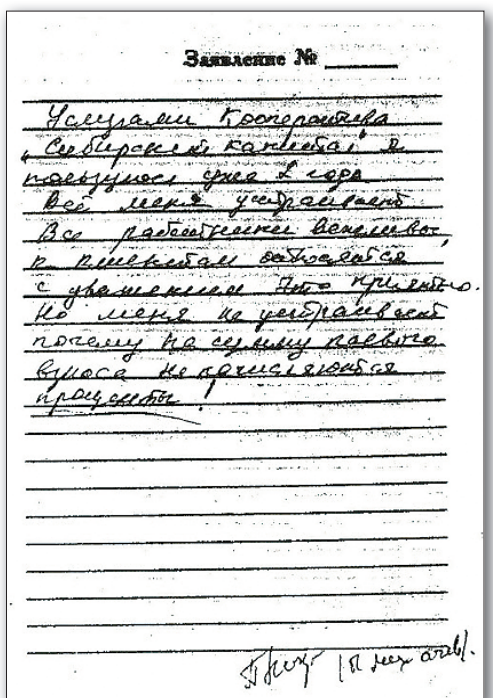 Заявление № ______
Услугами Кооператива
„Сибирский капитал" я
пользуюсь уже 2 года
Всё меня устраивает
Все работники вежливы,
к клиентам относятся
с уважением Это приятно.
Но меня не устраивает
почему на сумму паевого
взноса не начисляются
проценты!